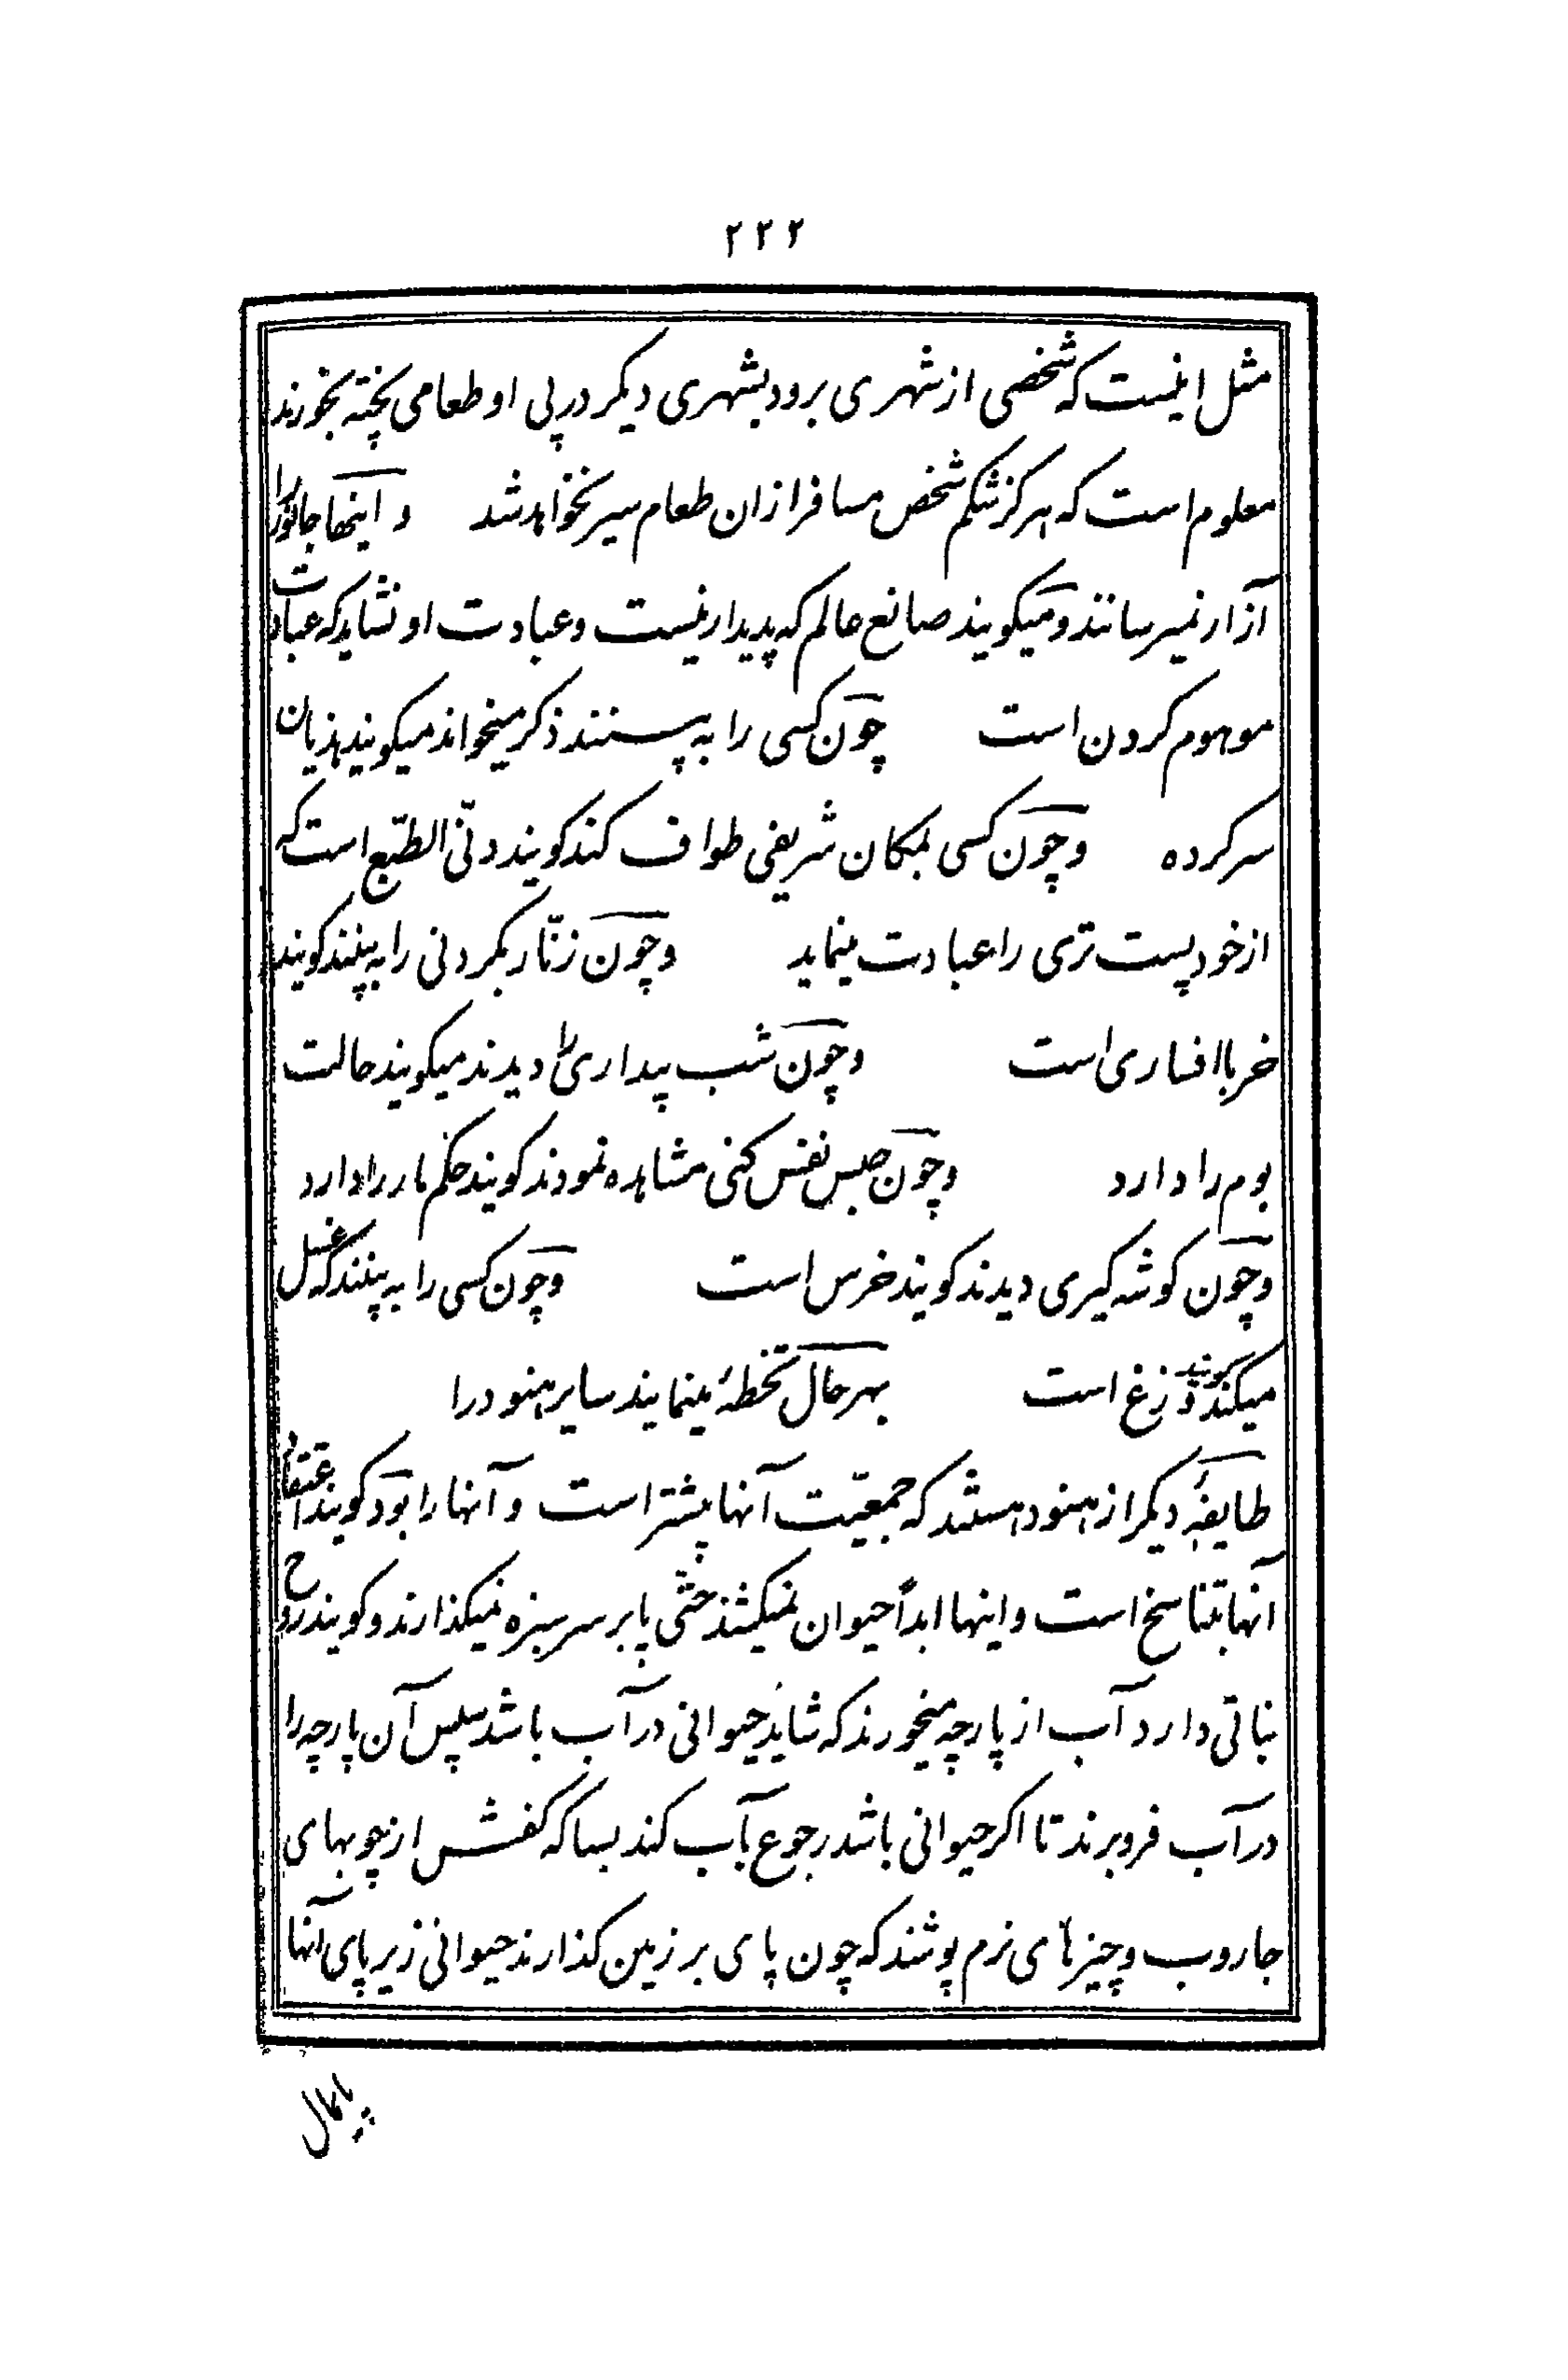 ۲۲۲
مثل اینست که شخصی از شهری برود بشهری دیکر در پی او طعامی پخته بخورند
معلوم است که هرکز شکم شخص مسافر ازان طعام سیر نخواهد شد و اینها جانور را
آزار نمیرسانند و میکویند صانع عالم که پدیدار نیست و عبادت او نشاید که عبادت
موهوم کردن است چون کسی را به پسنند ذکر میخواند میکویند هذیان
سر کرده و چون کسی بمکان شریفی طواف کند کویند دنّی الطبّع است که
از خود پست تری را عبادت مینماید و چون زنّار بکمر دنی را به پینند کویند
خر باافساری است و چون شب پیداری را دیدند میکویند حالت
بوم را دارد و چون حبس نفس کنی مشاهده نمودند کویند حکم مار را دارد
و چون کوشه کیری دیدند کویند خرس است و چون کسی را به پینند که غسل
میکند کویند وزغ است بهر حال تخطئه مینمایند سایر هنود را
طایفهٔ دیکر از هنود هستند که جمعیّت آنها پیشتر است و آنها را بود کویند اعتقاد
آنها بتناسخ است و اینها ابداً حیوان نمیکشند حتّی پا بر سر سبزه نمیکذارند و کویند روح
نباتی دارد آب از پارچه میخورند که شاید حیوانی در آب باشد سپس آن پارچه را
در آب فرو برند تا اکر حیوانی باشد رجوع بآب کند بسا که کفش از چوبهای
جاروب و چیزهای نرم پوشند که چون پای بر زمین کذارند حیوانی زیر پای آنها
پایمال